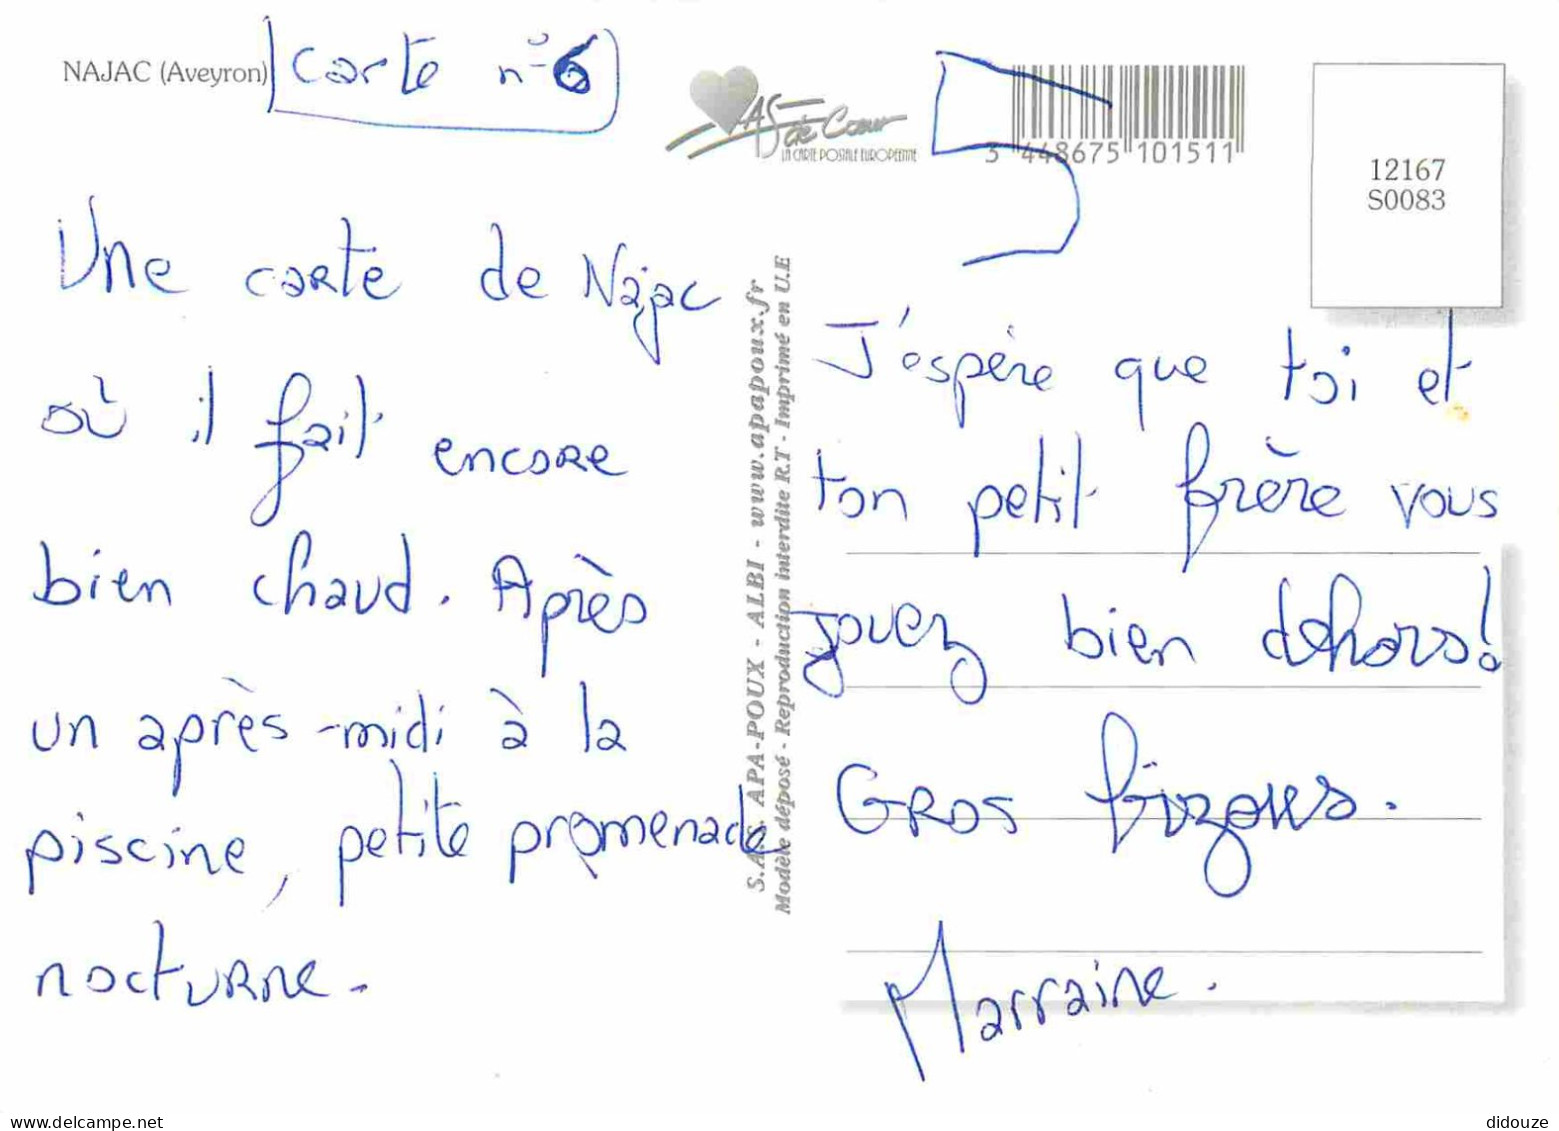 NAJAC (Aveyron)
Carte n°6
AS de Cœur
LA CARTE POSTALE EUROPEENNE
5
3 448675 101511
12167
S0083
Une carte de Najac
où il fait encore
bien chaud. Après
un après-midi à la
piscine, petite promenade
nocturne.
S.A.S. APA-POUX - ALBI - www.apapoux.fr
Modèle déposé - Reproduction interdite R.T - Imprimé en U.E
J'espère que toi et
ton petit frère vous
jouez bien dehors!
Gros bizous.
Marraine.
www.delcampe.net
didouze